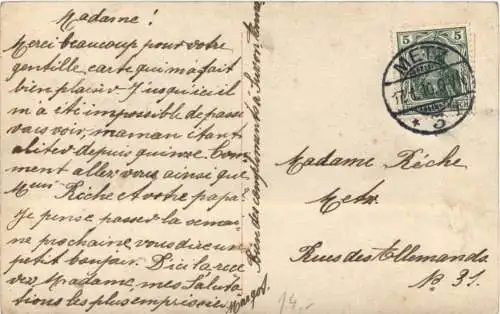 Madame!
Merci beaucoup pour votre
gentille carte qui m'a fait
bien plaisir. Jusqu'ici il
m'a été impossible de passer
vous voir, maman étant
alitée depuis quinze. Com-
ment allez vous ainsi que
Mʳ Rèche et votre papa?
Je pense passer la semai-
ne prochaine vous dire un
petit bonjour. D'ici la rece-
vez Madame, mes Saluta-
tions les plus empressées
Margot.
Bien des compliments à
5
5
METZ
* 3
Madame Rèche
Metz.
Rue des Allemands
No 31.
14.-